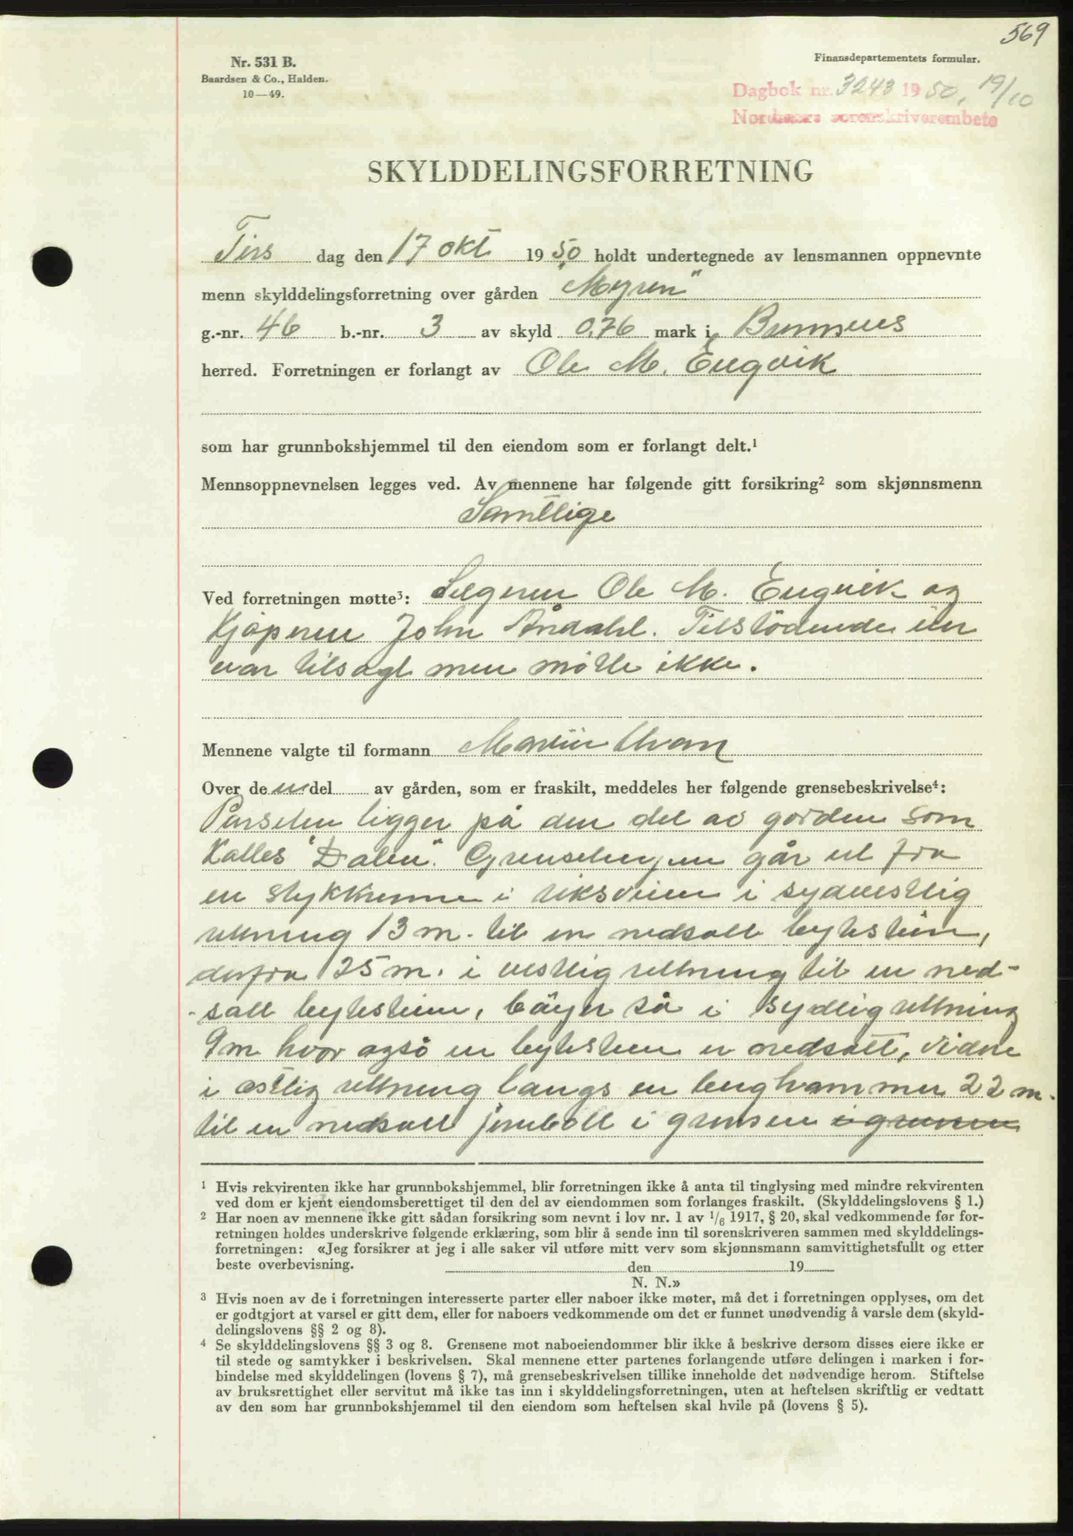 569
Nr. 531 B.
Baardsen & Co., Halden.
10—49.
Finansdepartementets formular.
Dagbok nr. 3243 1950, 19/10
Nordmøre sorenskriverembete
SKYLDDELINGSFORRETNING
Tirs dag den 17 okt 1950 holdt undertegnede av lensmannen oppnevnte
menn skylddelingsforretning over gården "Myren"
g.-nr. 46 b.-nr. 3 av skyld 0.76 mark i Bremsnes
herred. Forretningen er forlangt av Ole M. Engvik
som har grunnbokshjemmel til den eiendom som er forlangt delt.¹
Mennsoppnevnelsen legges ved. Av mennene har følgende gitt forsikring² som skjønnsmenn
Samtlige
Ved forretningen møtte³: Selgeren Ole M. Engvik og
Kjøperen John Årdahl. Tilstödende eier
var tilsagt men møtte ikke.
Mennene valgte til formann Martin
Over de en del av gården, som er fraskilt, meddeles her følgende grensebeskrivelse⁴:
Parselen ligger på den del av gården som
kalles "Dalen". går ut fra
en i riksveien i sydvestlig
retning 13 m. til en nedsatt bytestein,
derfra 25 m. i vestlig retning til en ned-
-satt bytestein, böyer så i sydlig retning
9m hvor også en bytesten er nedsatt, videre
i östlig retning langs en berghammer 22 m.
til en nedsatt jernbolt i grensen i grensen
¹ Hvis rekvirenten ikke har grunnbokshjemmel, blir forretningen ikke å anta til tinglysing med mindre rekvirenten
ved dom er kjent eiendomsberettiget til den del av eiendommen som forlanges fraskilt. (Skylddelingslovens § 1.)
² Har noen av mennene ikke gitt sådan forsikring som nevnt i lov nr. 1 av ¹/₆ 1917, § 20, skal vedkommende før for-
retningen holdes underskrive følgende erklæring, som blir å sende inn til sorenskriveren sammen med skylddelings-
forretningen: «Jeg forsikrer at jeg i alle saker vil utføre mitt verv som skjønnsmann samvittighetsfullt og etter
beste overbevisning. den 19
N. N.»
³ Hvis noen av de i forretningen interesserte parter eller naboer ikke møter, må det i forretningen opplyses, om det
er godtgjort at varsel er gitt dem, eller for naboers vedkommende om det er funnet unødvendig å varsle dem (skyld-
delingslovens §§ 2 og 8).
⁴ Se skylddelingslovens §§ 3 og 8. Grensene mot naboeiendommer blir ikke å beskrive dersom disses eiere ikke er
til stede og samtykker i beskrivelsen. Skal mennene etter partenes forlangende utføre delingen i marken i for-
bindelse med skylddelingen (lovens § 7), må grensebeskrivelsen tillike inneholde det nødvendige herom. Stiftelse
av bruksrettighet eller servitut må ikke tas inn i skylddelingsforretningen, uten at heftelsen skriftlig er vedtatt
av den som har grunnbokshjemmel til den eiendom som heftelsen skal hvile på (lovens § 5).